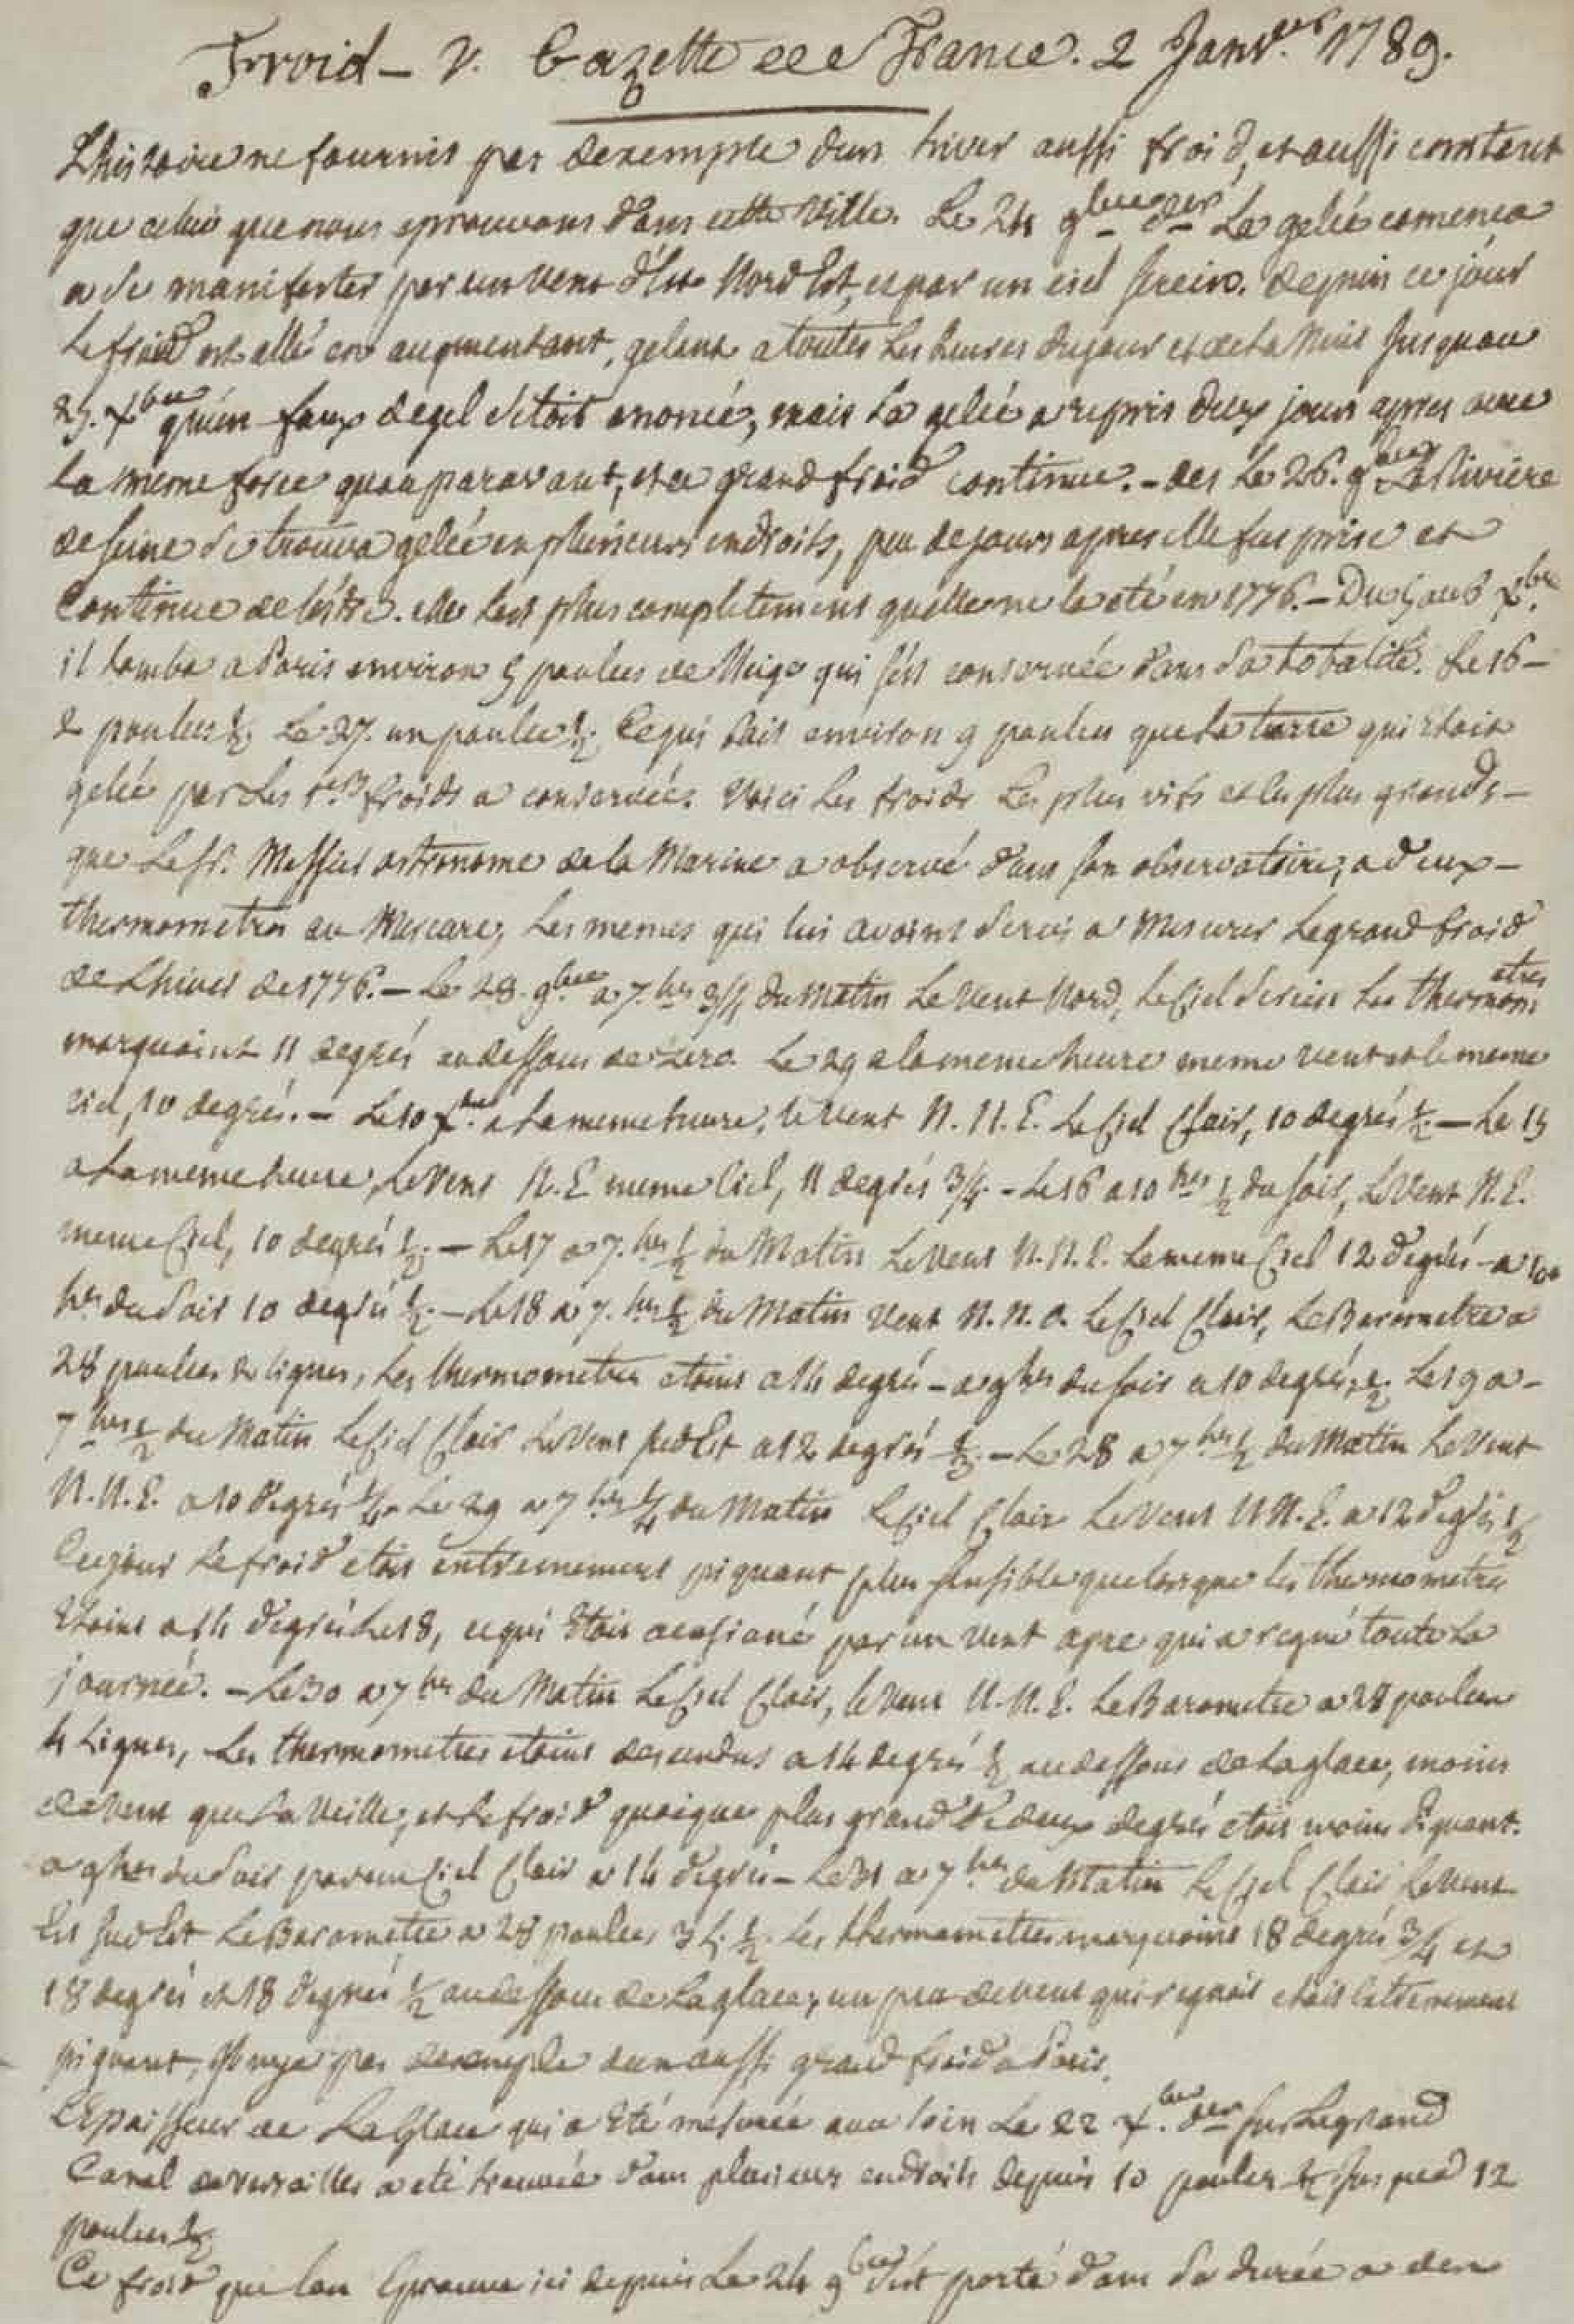 Froid – V. Gazette de France. 2 Janv.er 1789.
L'histoire ne fournit pas d'exemple d'un hiver aussi froid, et aussi constant
que celui que nous eprouvons dans cette ville. Le 24 9bre der La gelée comença
a se manifester par un vent d'Est Nord Est, et par un ciel serein. depuis ce jour
Le froid est allé en augmentant, gelant a toutes Les heures du jour et de la Nuit Jusqu'au
25. Xbre qu'un faux degel s'etoit anoncé, mais La gelée a repris deux jours apres avec
la meme force qu'auparavant, et ce grand froid continue. – des Le 26. 9bre La Riviere
de seine se trouva gelée en plusieurs endroits, peu de jours apres elle fut prise et
Continue de l'être. elle l'est plus completement qu'elle ne l'a été en 1776. – Du 5 au 6 Xbre.
il tomba a Paris environ 5 pouces de Neige qui s'est conservée dans sa totalité. Le 16 –
2 pouces ½. Le 27. un pouce ½. Ce qui fait environ 9 pouces que la terre qui etoit
gelée par Les 1ers froids a conservée. Voici Les froids Les plus vifs et les plus grands –
que Le Sr. Messier astronome de la Marine a observé dans son observatoire, a deux –
thermometres au Mercure, Les memes qui lui avoint servis a Mesurer Le grand froid
de L'hiver de 1776. – Le 28. 9bre a 7. hres 3/4 du Matin Le Vent Nord, Le Ciel Serein Les thermometres
marquoint 11 degrés au dessous de zero. Le 29 a la meme heure meme vent et le meme
ciel, 10 degrés. – Le 10 Xbre. a La meme heure, le Vent N. N. E. Le Ciel Clair, 10 degrés ½. – Le 15
a La meme heure, Le Vent N. E meme Ciel, 11 degrés 3/4. – Le 16 a 10 hres ½ du soir, Le Vent N. E.
meme Ciel, 10 degrés ½. – Le 17 a 7. hres ½ du Matin Le Vent N. N. E. Le meme Ciel 12 degrés – a 10
hres du soir 10 degrés ½. – Le 18 a 7. hres ½ du Matin Vent N. N. O. Le Ciel Clair, Le Barometre a
28 pouces 2 lignes, Les thermometres etoint a 14 degrés – a 9 hres du soir a 10 degrés ½. Le 19 a –
7 hres ½ du Matin Le Ciel Clair Le Vent Sud Est a 12 degrés ⅓. – Le 28 a 7 hres ½ du Matin Le Vent
N. N. E. a 10 degrés ¼. Le 29 a 7 hres ¼ du Matin Le Ciel Clair Le Vent N N. E. a 12 degrés ½
Ce jour Le froid etoit extremement piquant plus sensible que lorsque les thermometres
Etoint a 14 degrés Le 18, ce qui Etoit occasioné par un Vent apre qui a regné toute La
journée. – Le 30 a 7 hres du Matin Le Ciel Clair, le Vent N. N. E. Le Barometre a 28 pouces
4 Lignes, Les thermometres etoint descendus a 14 degrés ½ au dessous de La glace, moins
de Vent que La Veille, et Le froid quoique plus grand de deux degrés etoit moins Piquant.
a 9 hres du soir par un Ciel Clair a 14 degrés – Le 31 a 7 hres du Matin Le Ciel Clair Le Vent
Est Sud Est Le Barometre a 28 pouces 3 L. ½. Les thermometres marquoint 18 degrés 3/4 et
18 degrés et 18 degrés ½ au dessous de La glace, un peu de vent qui regnoit etoit Extremement
piquant, il n'y a pas d'exemple d'un aussi grand froid a Paris.
L'Epaisseur de La Glace qui a Eté mesurée avec soin Le 22 X.bre der sur Le grand
Canal de Versailles a eté trouvée dans plusieurs endroits depuis 10 pouces ½ jusqu'a 12
pouces ½
Ce froid que l'on Eprouve ici depuis Le 24 9bre s'est porté dans sa durée a des